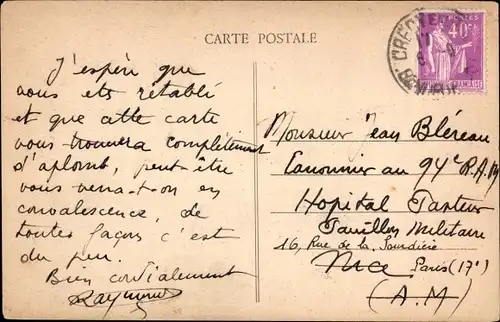 CARTE POSTALE
POSTES
40c
J'espère que
vous ets rétabli
et que cette carte
vous trouvera complètement
d'aplomb, peut-être
vous verra-t-on en
convalescence, de
toutes façons c'est
du peu.
Bien cordialement
Raymond
Monsieur Jean Bléreau
Canonnier au 94e R.A.M
Hopital Pasteur
Pavillon Militaire
16, Rue de la Sourdière
Nice Paris (1er)
(A.M)